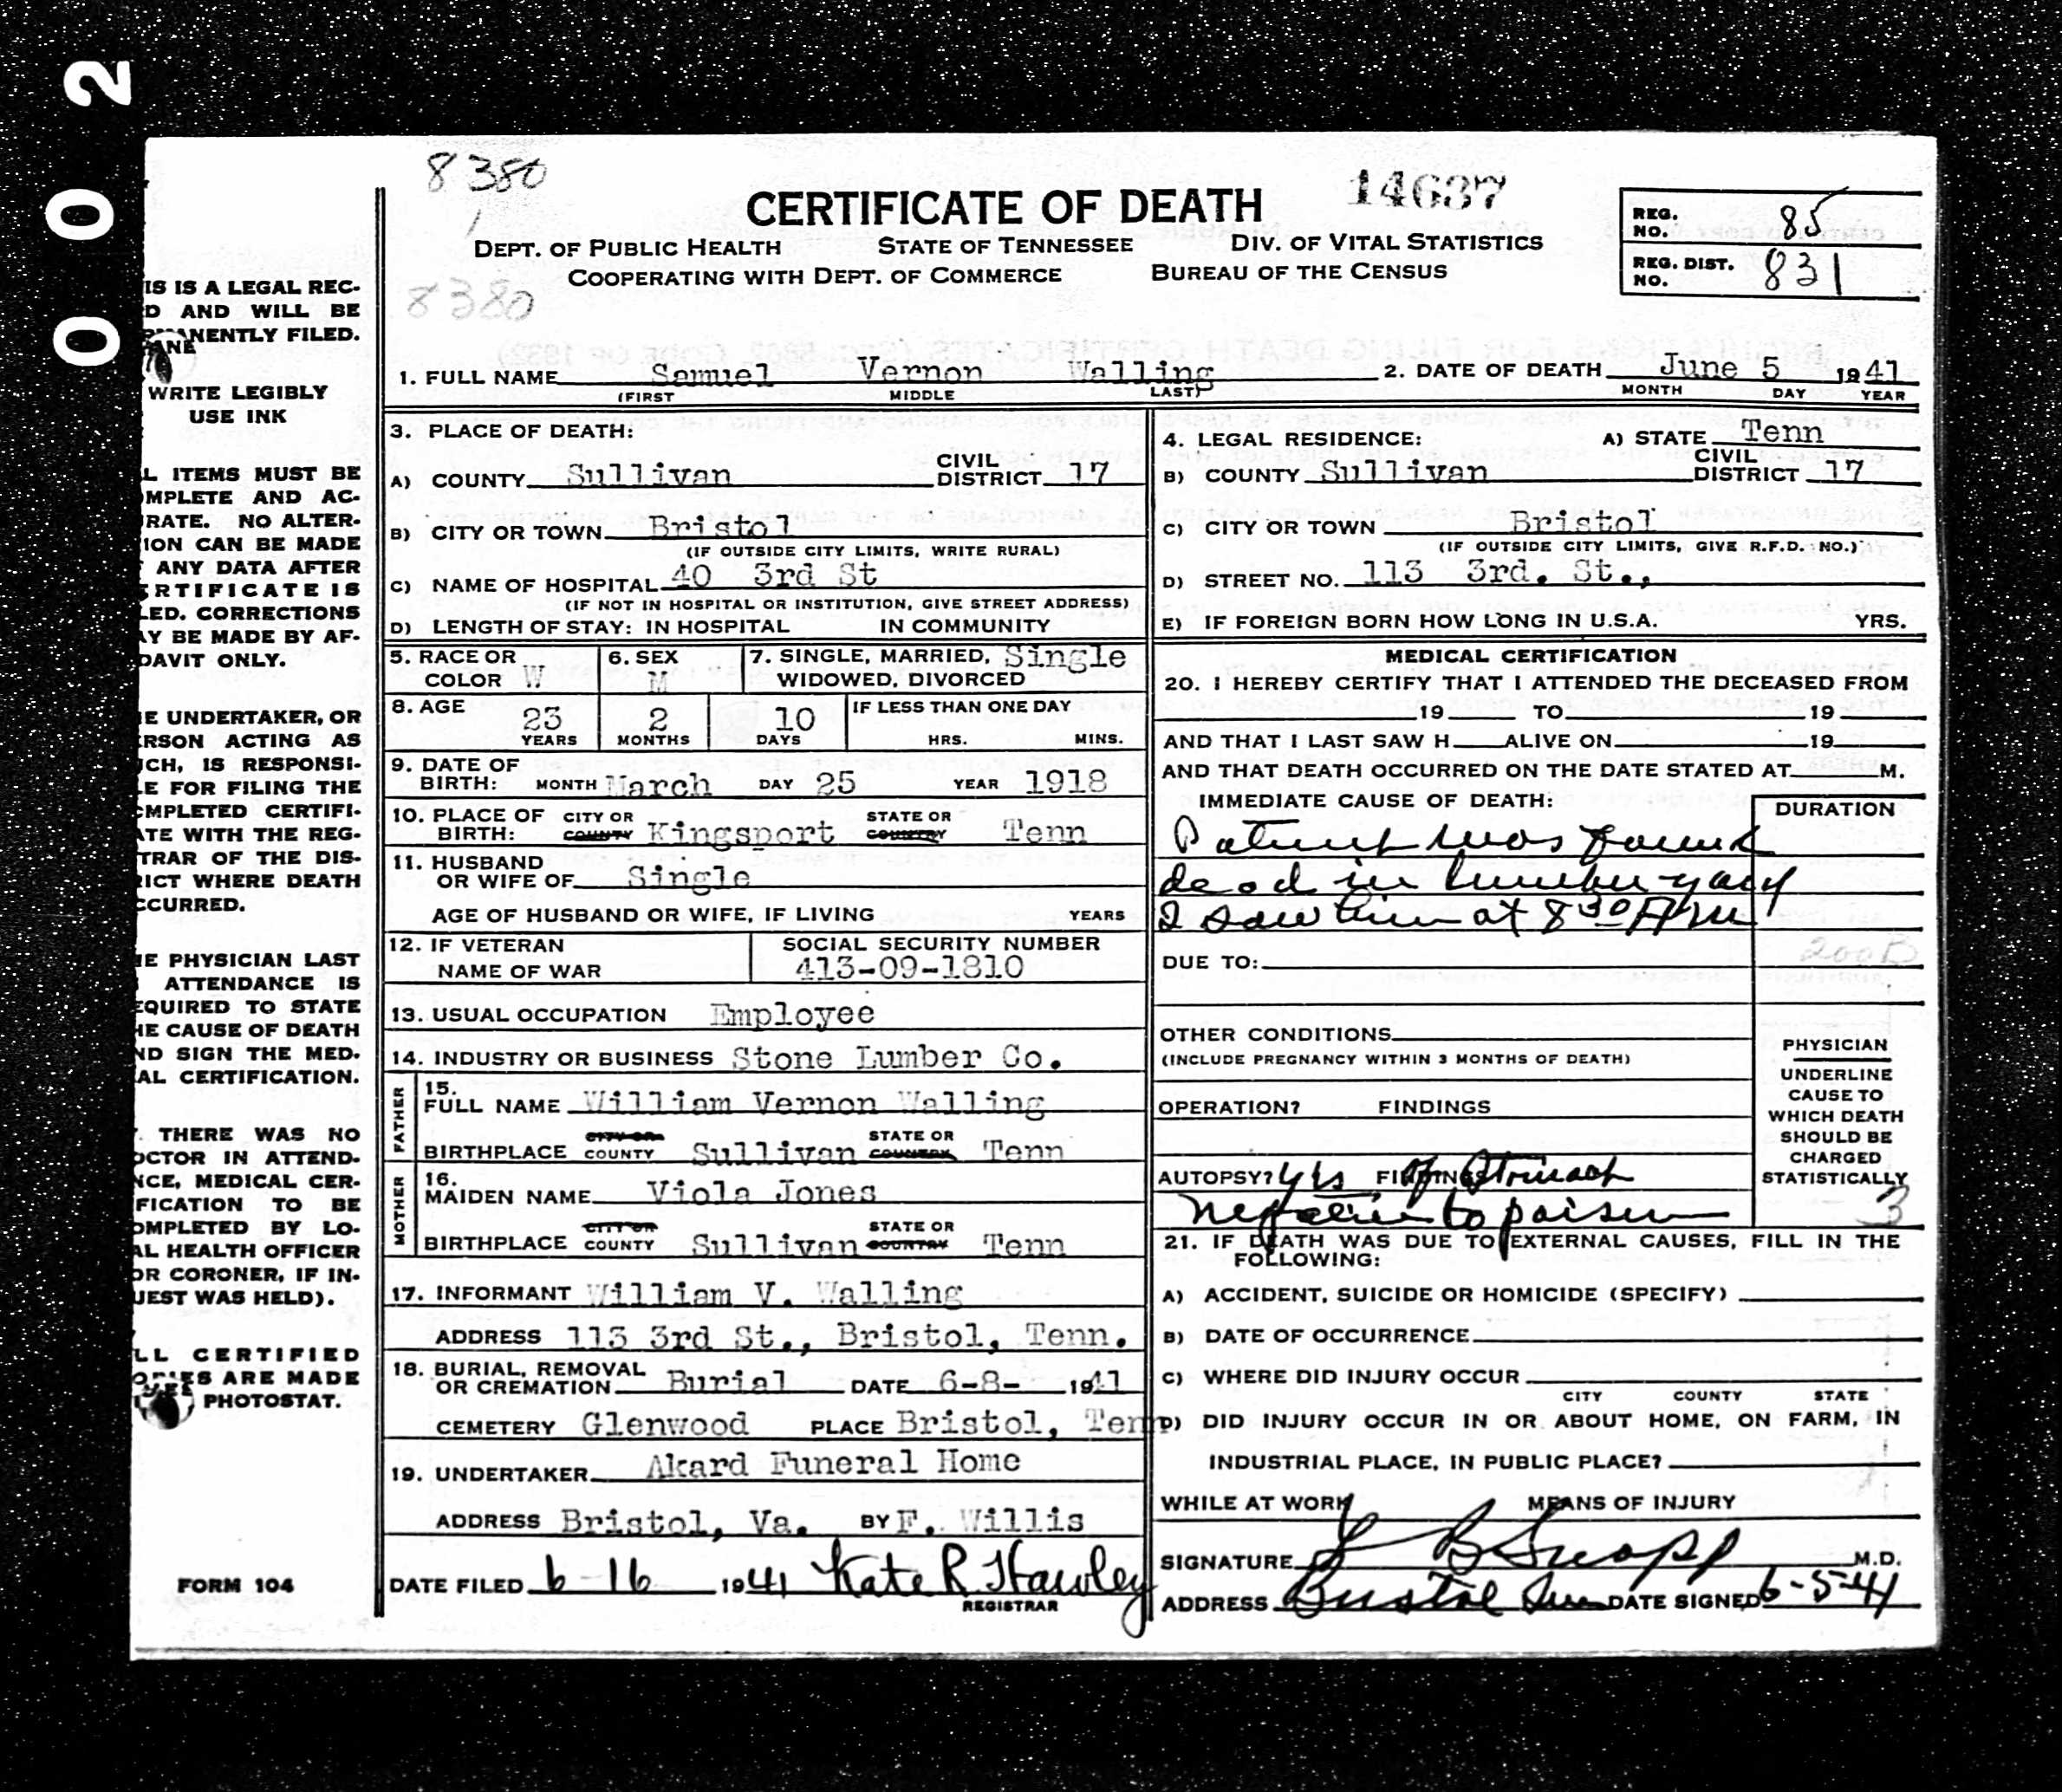 0 0 0 2
8380
14637
CERTIFICATE OF DEATH
DEPT. OF PUBLIC HEALTH STATE OF TENNESSEE DIV. OF VITAL STATISTICS
COOPERATING WITH DEPT. OF COMMERCE BUREAU OF THE CENSUS
REG. NO. 85
REG. DIST. NO. 831
8380
1. FULL NAME Samuel Vernon Walling 2. DATE OF DEATH June 5 1941
(FIRST MIDDLE LAST) MONTH DAY YEAR
3. PLACE OF DEATH:
A) COUNTY Sullivan CIVIL DISTRICT 17
B) CITY OR TOWN Bristol
(IF OUTSIDE CITY LIMITS, WRITE RURAL)
C) NAME OF HOSPITAL 40 3rd St
(IF NOT IN HOSPITAL OR INSTITUTION, GIVE STREET ADDRESS)
D) LENGTH OF STAY: IN HOSPITAL IN COMMUNITY
4. LEGAL RESIDENCE: A) STATE Tenn
B) COUNTY Sullivan CIVIL DISTRICT 17
C) CITY OR TOWN Bristol
(IF OUTSIDE CITY LIMITS, GIVE R.F.D. NO.)
D) STREET NO. 113 3rd. St.,
E) IF FOREIGN BORN HOW LONG IN U.S.A. YRS.
5. RACE OR COLOR W 6. SEX M 7. SINGLE, MARRIED, WIDOWED, DIVORCED Single
8. AGE 23 YEARS 2 MONTHS 10 DAYS IF LESS THAN ONE DAY HRS. MINS.
9. DATE OF BIRTH: MONTH March DAY 25 YEAR 1918
10. PLACE OF BIRTH: CITY OR COUNTY Kingsport STATE OR COUNTRY Tenn
11. HUSBAND OR WIFE OF Single
AGE OF HUSBAND OR WIFE, IF LIVING YEARS
12. IF VETERAN NAME OF WAR SOCIAL SECURITY NUMBER 413-09-1810
13. USUAL OCCUPATION Employee
14. INDUSTRY OR BUSINESS Stone Lumber Co.
FATHER
15. FULL NAME William Vernon Walling
BIRTHPLACE CITY OR COUNTY Sullivan STATE OR COUNTRY Tenn
MOTHER
16. MAIDEN NAME Viola Jones
BIRTHPLACE CITY OR COUNTY Sullivan STATE OR COUNTRY Tenn
17. INFORMANT William V. Walling
ADDRESS 113 3rd St., Bristol, Tenn.
18. BURIAL, REMOVAL OR CREMATION Burial DATE 6-8- 1941
CEMETERY Glenwood PLACE Bristol, Tenn
19. UNDERTAKER Akard Funeral Home
ADDRESS Bristol, Va. BY F. Willis
DATE FILED 6-16 1941 Kate R Hawley
REGISTRAR
MEDICAL CERTIFICATION
20. I HEREBY CERTIFY THAT I ATTENDED THE DECEASED FROM
19 TO 19
AND THAT I LAST SAW H ALIVE ON 19
AND THAT DEATH OCCURRED ON THE DATE STATED AT M.
IMMEDIATE CAUSE OF DEATH: DURATION
Patient was found
dead in lumber yard
I saw him at 8 30 AM
200B
DUE TO:
OTHER CONDITIONS
(INCLUDE PREGNANCY WITHIN 3 MONTHS OF DEATH)
OPERATION? FINDINGS
PHYSICIAN
UNDERLINE
CAUSE TO
WHICH DEATH
SHOULD BE
CHARGED
STATISTICALLY
3
AUTOPSY? yes FINDINGS of Stomach
Negative to poison
21. IF DEATH WAS DUE TO EXTERNAL CAUSES, FILL IN THE
FOLLOWING:
A) ACCIDENT, SUICIDE OR HOMICIDE (SPECIFY)
B) DATE OF OCCURRENCE
C) WHERE DID INJURY OCCUR
CITY COUNTY STATE
D) DID INJURY OCCUR IN OR ABOUT HOME, ON FARM, IN
INDUSTRIAL PLACE, IN PUBLIC PLACE?
WHILE AT WORK MEANS OF INJURY
SIGNATURE B Snapp M.D.
ADDRESS Bristol Tenn DATE SIGNED 6-5-41
IS IS A LEGAL REC-
D AND WILL BE
MANENTLY FILED.
WRITE LEGIBLY
USE INK
L ITEMS MUST BE
MPLETE AND AC-
RATE. NO ALTER-
ION CAN BE MADE
ANY DATA AFTER
ERTIFICATE IS
LED. CORRECTIONS
AY BE MADE BY AF-
DAVIT ONLY.
E UNDERTAKER, OR
ERSON ACTING AS
UCH, IS RESPONSI-
E FOR FILING THE
OMPLETED CERTIFI-
ATE WITH THE REG-
TRAR OF THE DIS-
RICT WHERE DEATH
CCURRED.
HE PHYSICIAN LAST
ATTENDANCE IS
EQUIRED TO STATE
HE CAUSE OF DEATH
ND SIGN THE MED-
AL CERTIFICATION.
THERE WAS NO
OCTOR IN ATTEND-
NCE, MEDICAL CER-
FICATION TO BE
OMPLETED BY LO-
AL HEALTH OFFICER
OR CORONER, IF IN-
UEST WAS HELD).
LL CERTIFIED
OPIES ARE MADE
PHOTOSTAT.
FORM 104